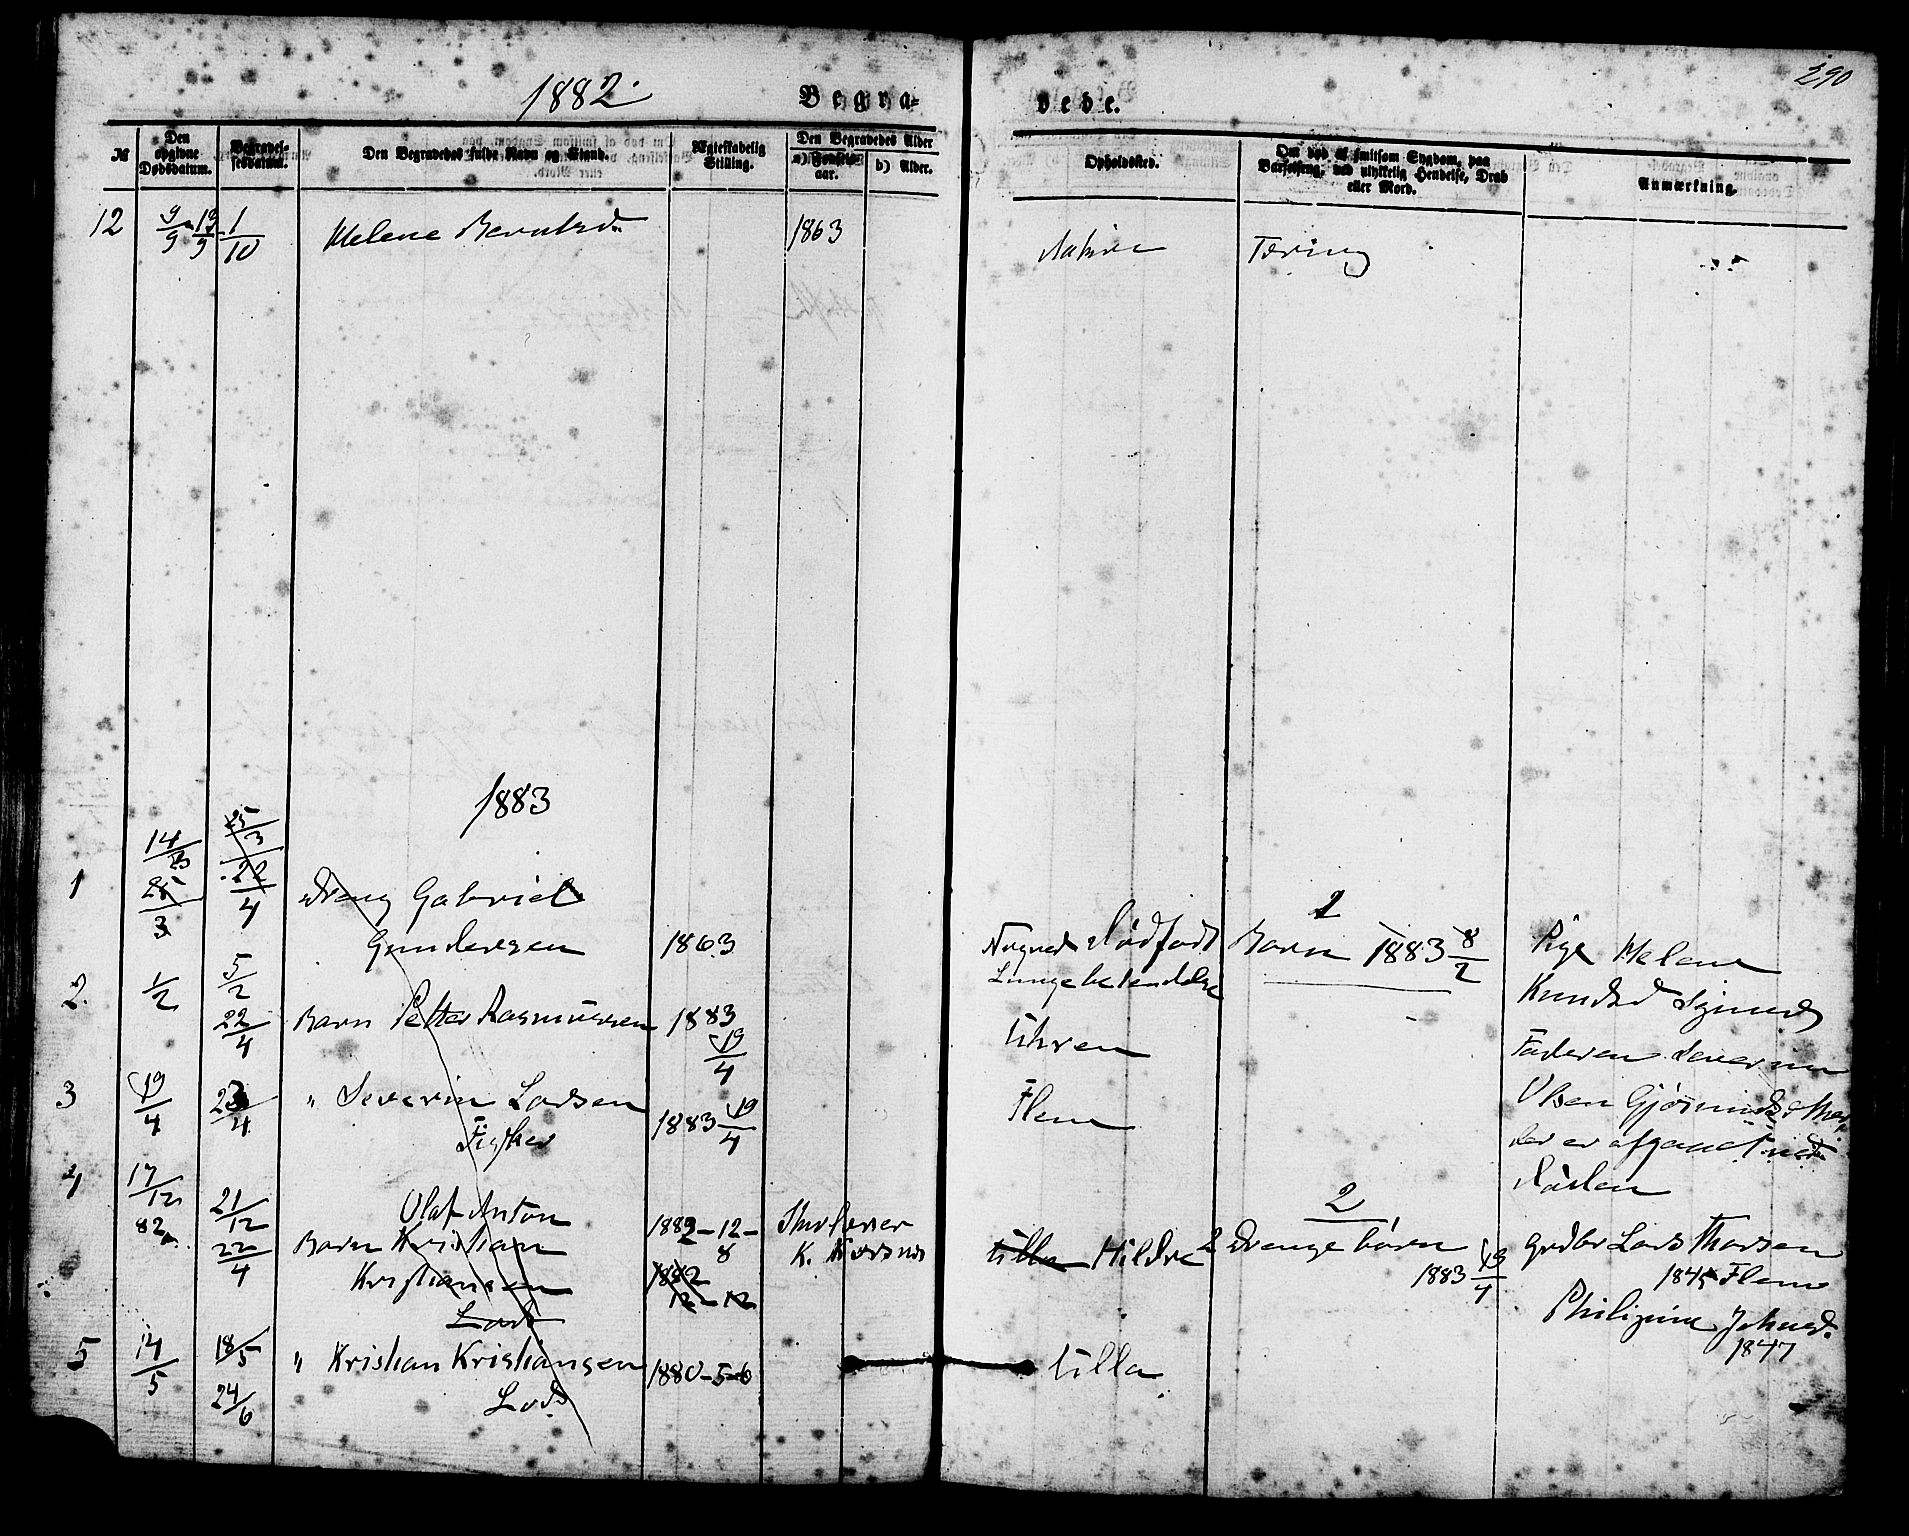 290
1882.
Begra-
vede.
№
Den opgivne Dødsdatum.
Begravelsesdatum.
Den Begravedes fulde Navn og Stand.
Ægteskabelig Stilling.
Den Begravedes Alder
a) Fødselsaar.
b) Alder.
Opholdssted.
Om død af smitsom Sygdom, paa Barselseng, ved ulykkelig Hendelse, Drab eller Mord.
Anmærkning.
12 9/9 1/10 Helene Berntsd. 1863 Tæring
1883
1 14/3 25/3 25/3 22/4 Dreng Gabriel
Gundersen 1863 Dødfødt Barn 1883 8/2 Pige Helene
2. 1/2 5/2 Lungebetendelse Knudsd
22/4 Barn Petter Rasmussen 1883 19/4 Uhren
Faderen Severin
3 19/4 23/4 " Severin Larsen 1883 19/4 Flem Olsen
Fisker er
4 17/12 82 21/12 Olaf Anton 1882-12-8 2
22/4 Barn Kristian K. Ulla Hildre 2 Drengebørn 1883 19/4 Lars Thorsen
Kristiansen 1882 12-12 1845 Flem
Lods Johnsd.
1847
5 14/5 18/5 " Kristian Kristiansen 1880-5-6 Ulla
24/6 Lods